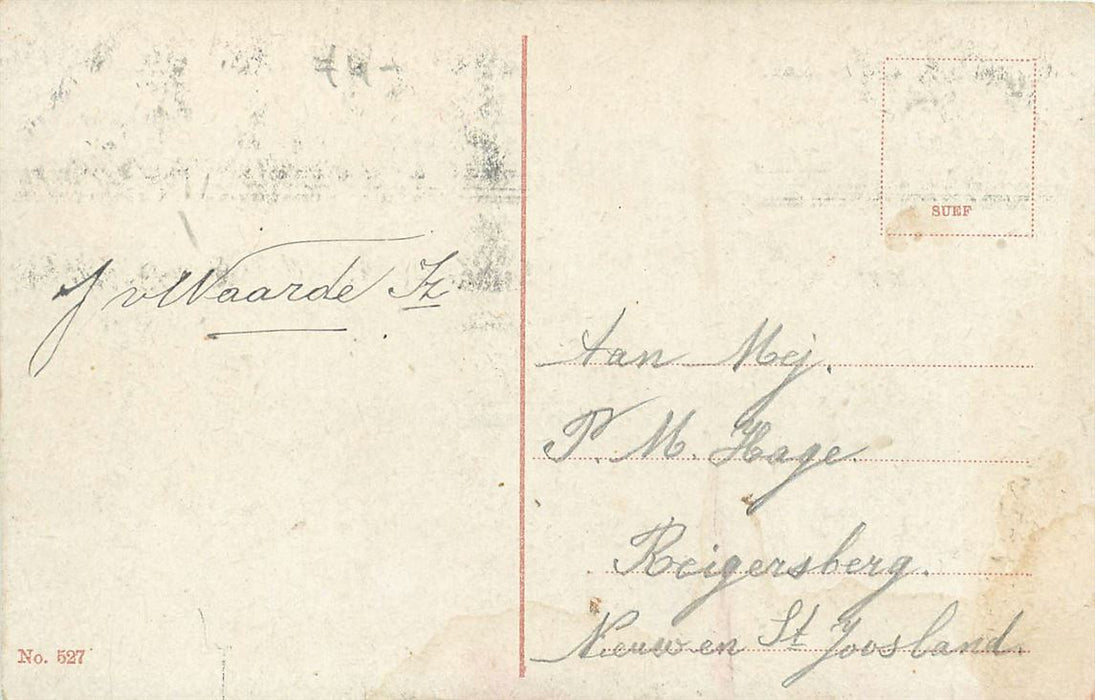 J v Waarde Jz
No. 527
SUEF
Aan Mej.
P. M. Hage.
Reigersberg.
Nieuw en St Joosland.